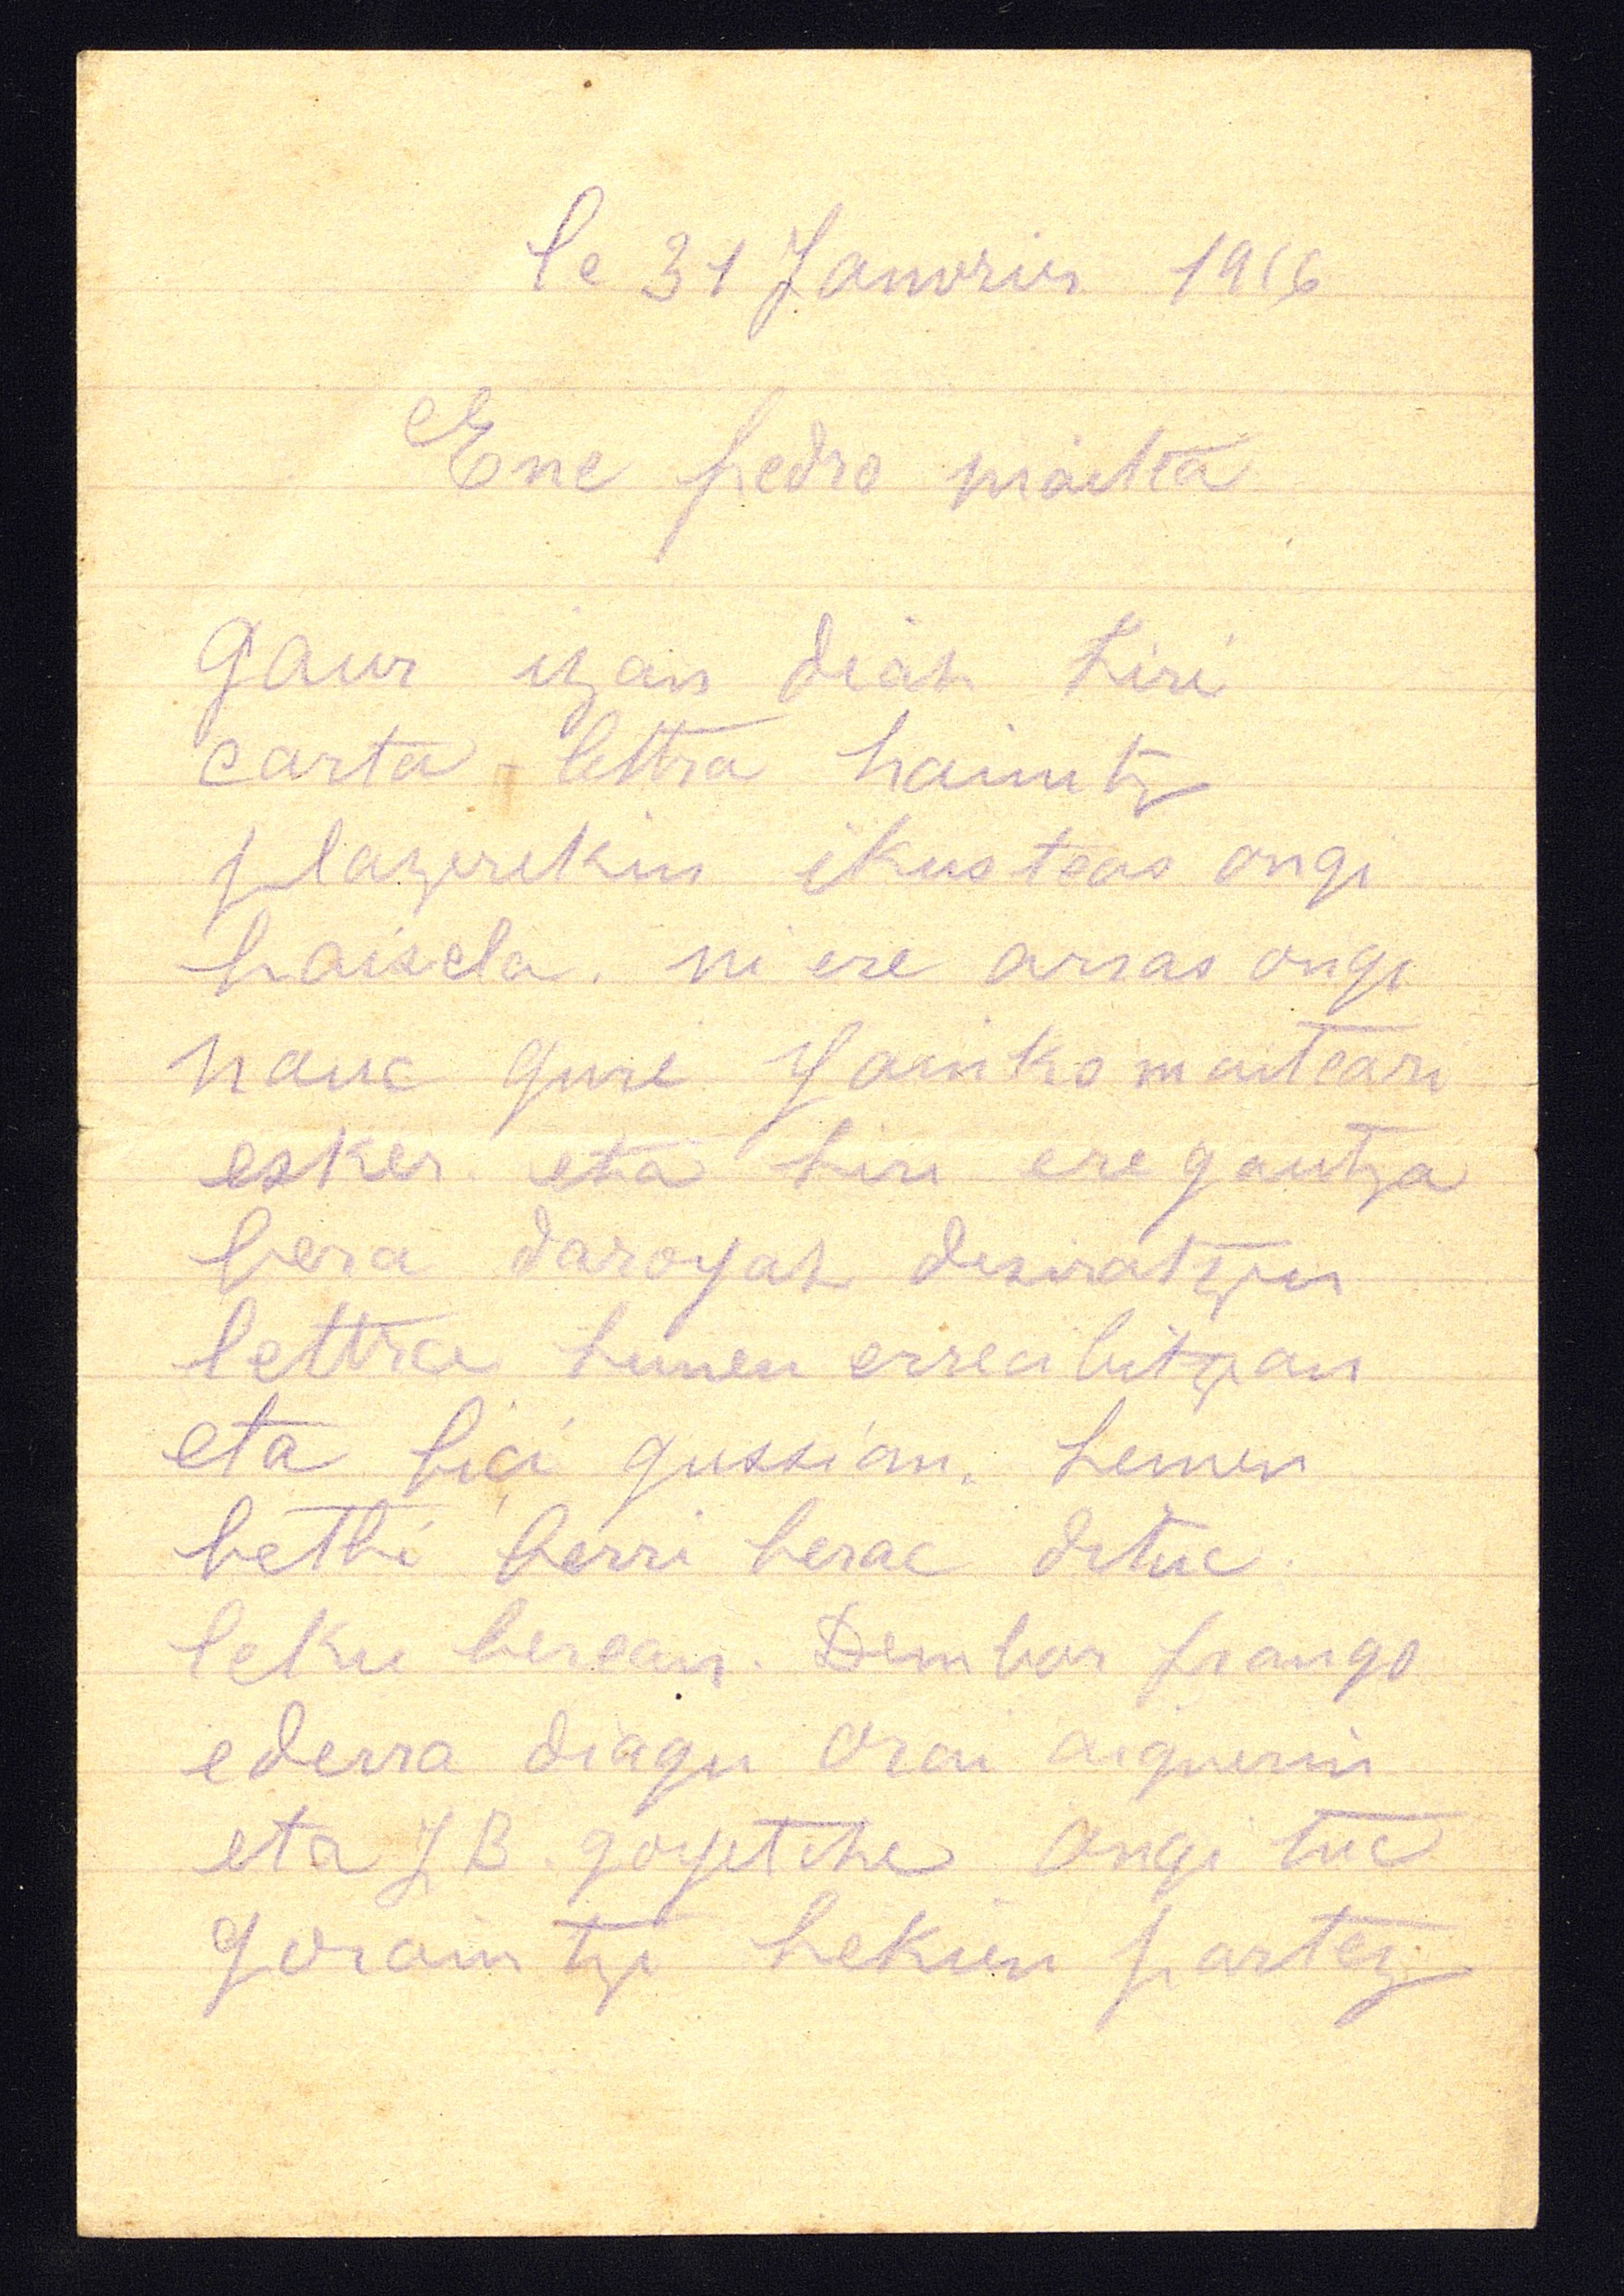 le 31 Janvrier 1916
Ene pedro maitea
gaur izan diat hire
carta-lettra haimitz
plazerekin ikusteas ongi
haisela. ni ere arras ongi
nauc gure Yainko maiteari
esker. eta hiri ere gautza
bera daroyat desiratzen
lettra hunen errecibitzian
eta bici gussian. hemen
bethi berri berac dituc
leku berean. Dembor frango
ederra diagu orai aiguerin
eta J B. goyetche ongi tuc
goraintzi hekien partez